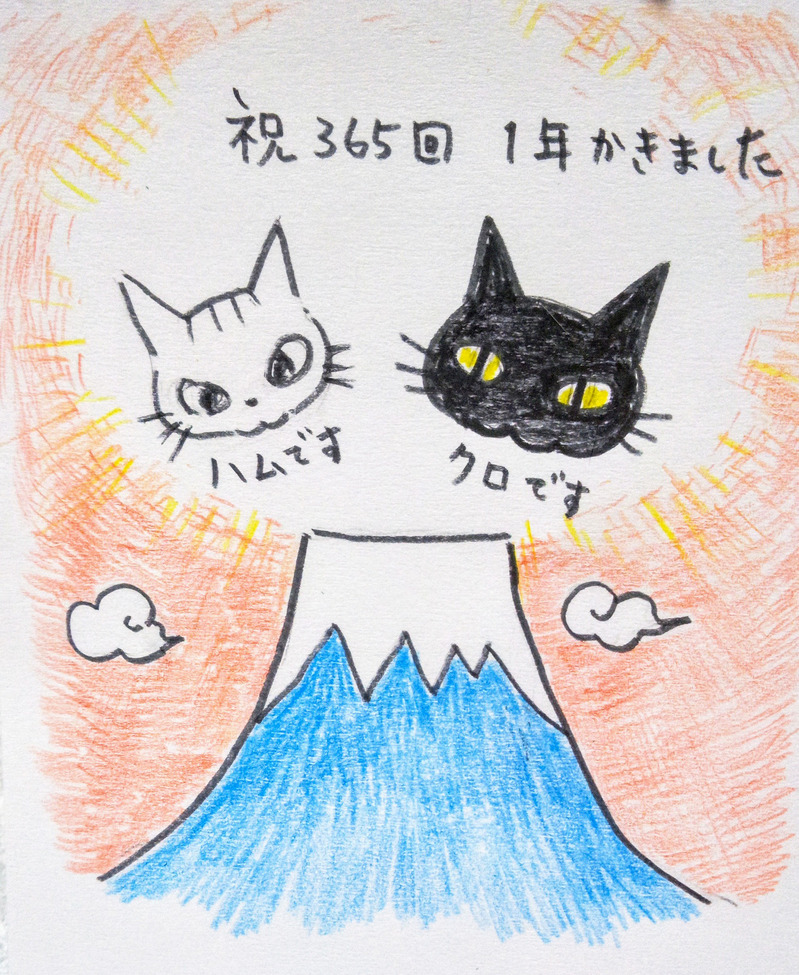 祝365回 1年かきました
ハムです
クロです